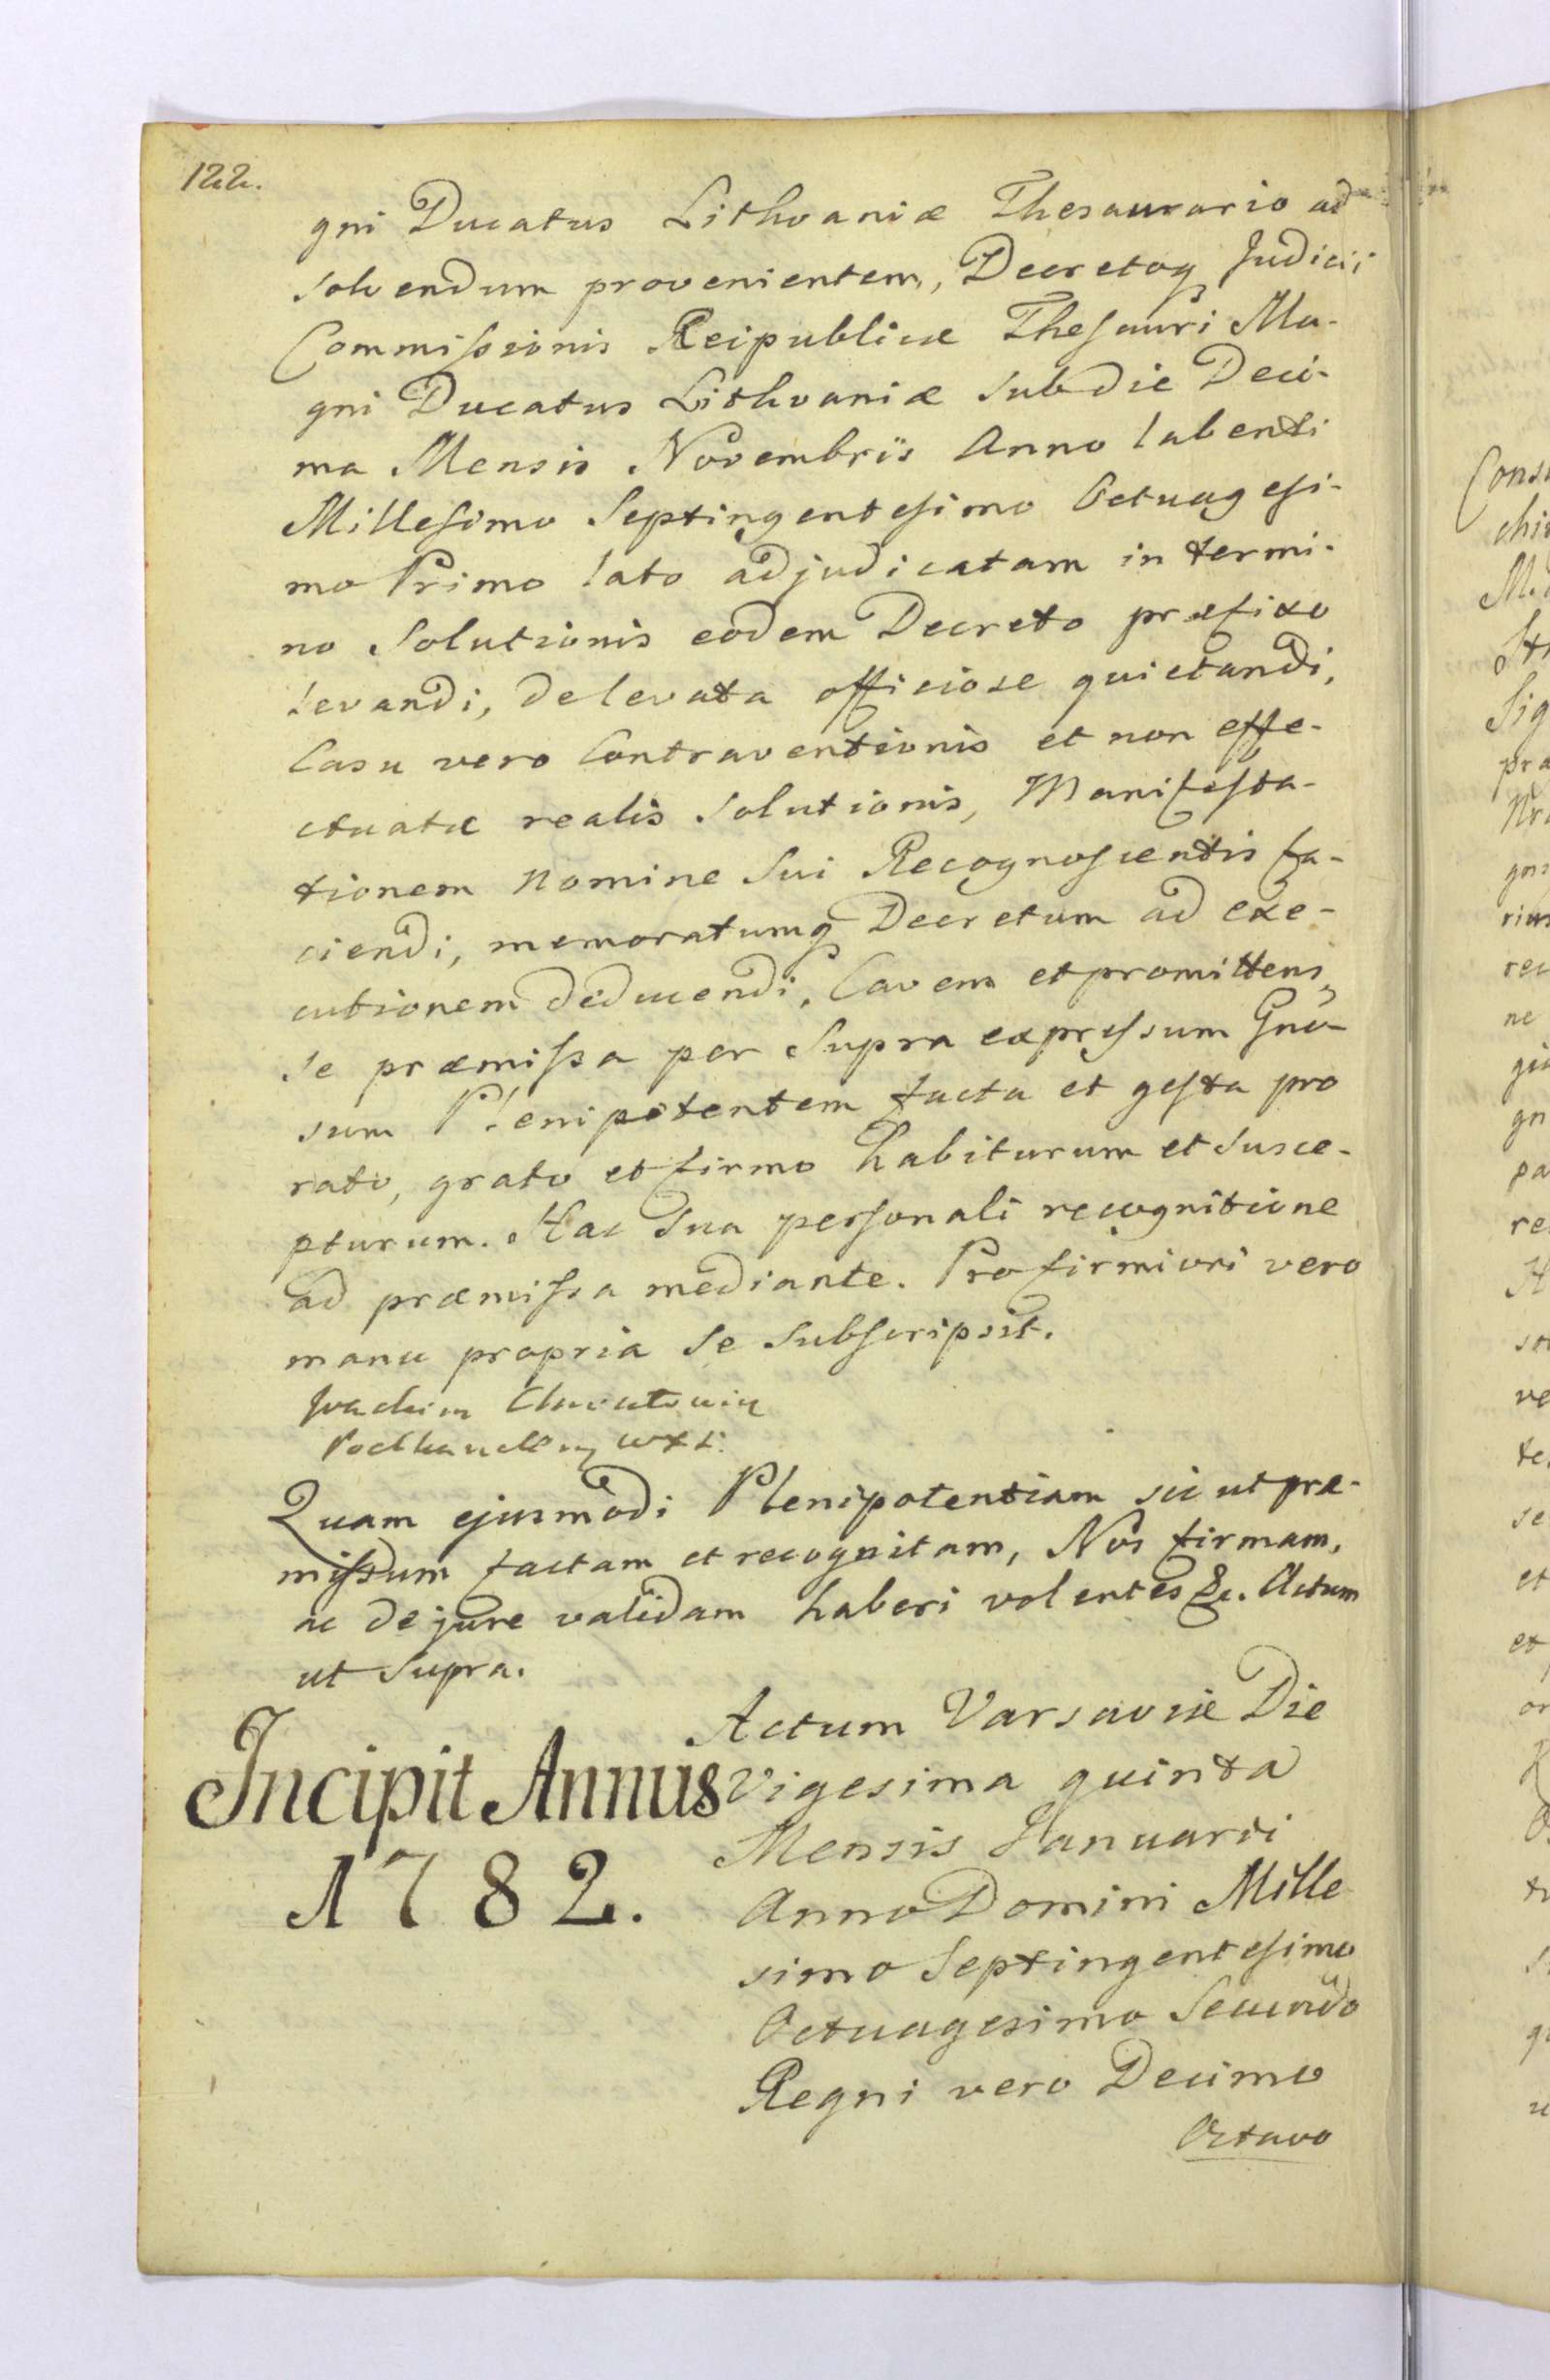 122.
gni Ducatus Lithvaniæ Thesaurario ad
solvendum provenientem, Decretoq Judicii
Commiſsionis Reipublicæ Theſauri Ma-
gni Ducatus Lithvaniæ sub die Deci-
ma Mensis Novembris Anno labenti
Milleſimo Septingenteſimo Octuageſi-
mo Primo lato adjudicatam in termi-
no Solutionis eodem Decreto præfixo
levandi, de levata officiose quietandi,
Casu vero Contraventionis et non effe-
ctuatæ realis Solutionis, Manifeſta-
tionem Nomine Sui Recognoſcentis fa-
ciendi, memoratumq Decretum ad exe-
cutionem deducendi, Cavens et promittens
se præmiſsa per Supra expreſsum Gno-
sum Plenipotentem facta et geſta pro
rato, grato et firmo habiturum et susce-
pturum. Hac Sua perſonali recognitione
ad præmiſsa mediante. Pro firmiori vero
manu propria Se Subſcripsit.
Joachim
Quam ejusmodi Plenipotentiam sic ut præ-
miſsum factam et recognitam, Nos firmam,
ac de jure validam haberi volentes &c. Actum
ut Supra.
Incipit Annus
1782.
Actum Varsaviæ Die
Vigesima quinta
Mensis Januarii
Anno Domini Mille
simo Septingenteſimo
Octuagesimo Secundo
Regni vero Decimo
Octavo
Consi
Sig
pra
rius
rec
ne
gn
pa
re
ve
te
se
et
et